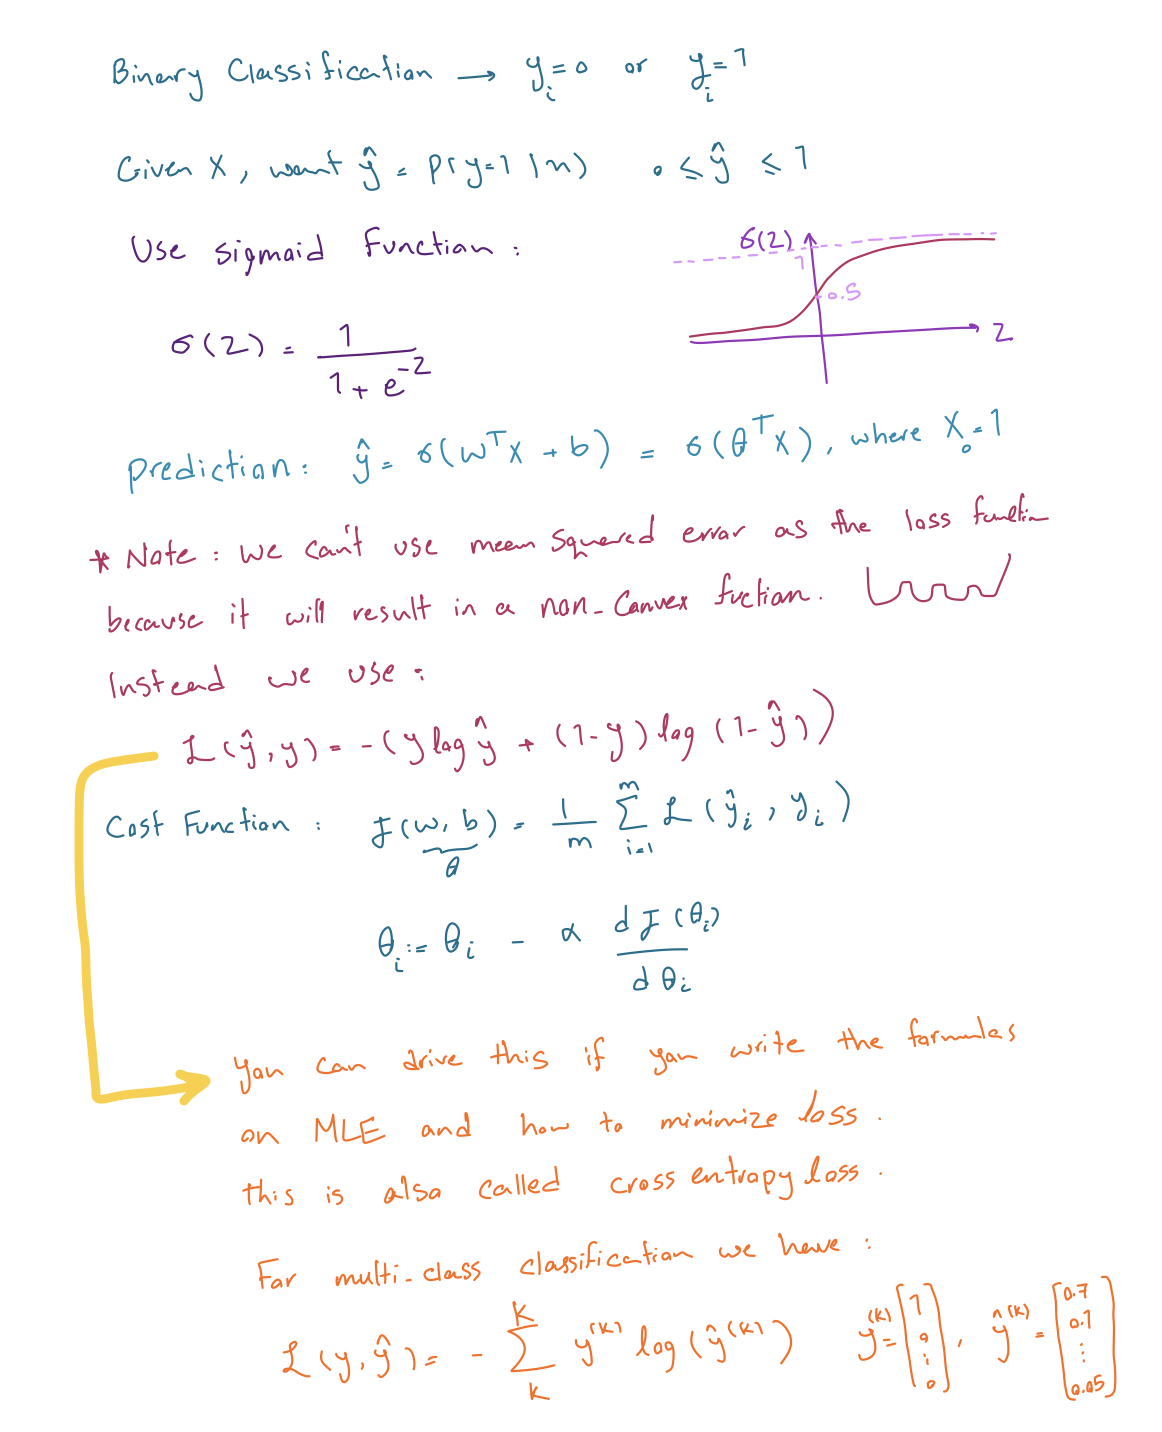 Binary Classification → y_i = 0 or y_i = 1
Given X, want ŷ = P(y=1|x) 0 ≤ ŷ ≤ 1
Use sigmoid function:
σ(z)
1
0.5
z
σ(z) = 1 / (1 + e^-z)
Prediction: ŷ = σ(w^T x + b) = σ(θ^T x), where x_0 = 1
* Note: we can't use mean squared error as the loss function
because it will result in a non-convex fuction.
Instead we use:
L(ŷ, y) = -(y log ŷ + (1-y) log (1-ŷ))
Cost Function: J(w, b) = 1/m Σ_{i=1}^{m} L(ŷ_i, y_i)
θ
θ_i := θ_i - α dJ(θ_i) / dθ_i
you can drive this if you write the formulas
on MLE and how to minimize loss.
this is also called cross entropy loss.
For multi-class classification we have:
L(y, ŷ) = - Σ_{k}^{K} y^(k) log(ŷ^(k)) y^(k) = [1 0 ⋮ 0], ŷ^(k) = [0.7 0.1 ⋮ 0.05]